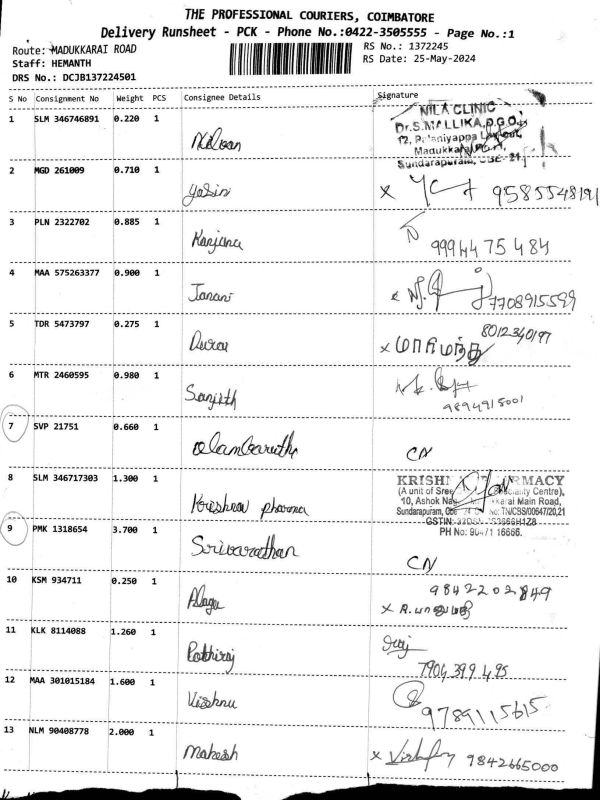 THE PROFESSIONAL COURIERS, COIMBATORE
Delivery Runsheet - PCK - Phone No.:0422-3505555 - Page No.:1
Route: MADUKKARAI ROAD
RS No.: 1372245
Staff: HEMANTH
RS Date: 25-May-2024
DRS No.: DCJB137224501
S No Consignment No Weight PCS Consignee Details Signature
1 SLM 346746891 0.220 1
NILA CLINIC
Dr.S.MALLIKA,D.G.O.,
12, Palaniyappa Layout,
Madukkarai
Sundarapuram, CBE-21
2 MGD 261009 0.710 1 Yasin 9585548191
3 PLN 2322702 0.885 1 Kanjana N
9994475484
4 MAA 575263377 0.900 1 Janani 7708915599
5 TDR 5473797 0.275 1 Durai 8012340197
x மாரிமுத்து
6 MTR 2460595 0.980 1 Sanjith
9894915001
7 SVP 21751 0.660 1 CN
8 SLM 346717303 1.300 1 Krishna pharma
KRISH RMACY
(A unit of Sree Speciality Centre),
10, Ashok Nagar, Main Road,
Sundarapuram, No: TN/CBS/00647/20,21
GSTIN:
PH No: 90471 16666.
9 PMK 1318654 3.700 1 CN
10 KSM 934711 0.250 1 Alagu 9842202849
11 KLK 8114088 1.260 1 Pothiraj
7904 399 495
12 MAA 301015184 1.600 1 Vishnu 9789115615
13 NLM 90408778 2.000 1 Mahesh x 9842665000